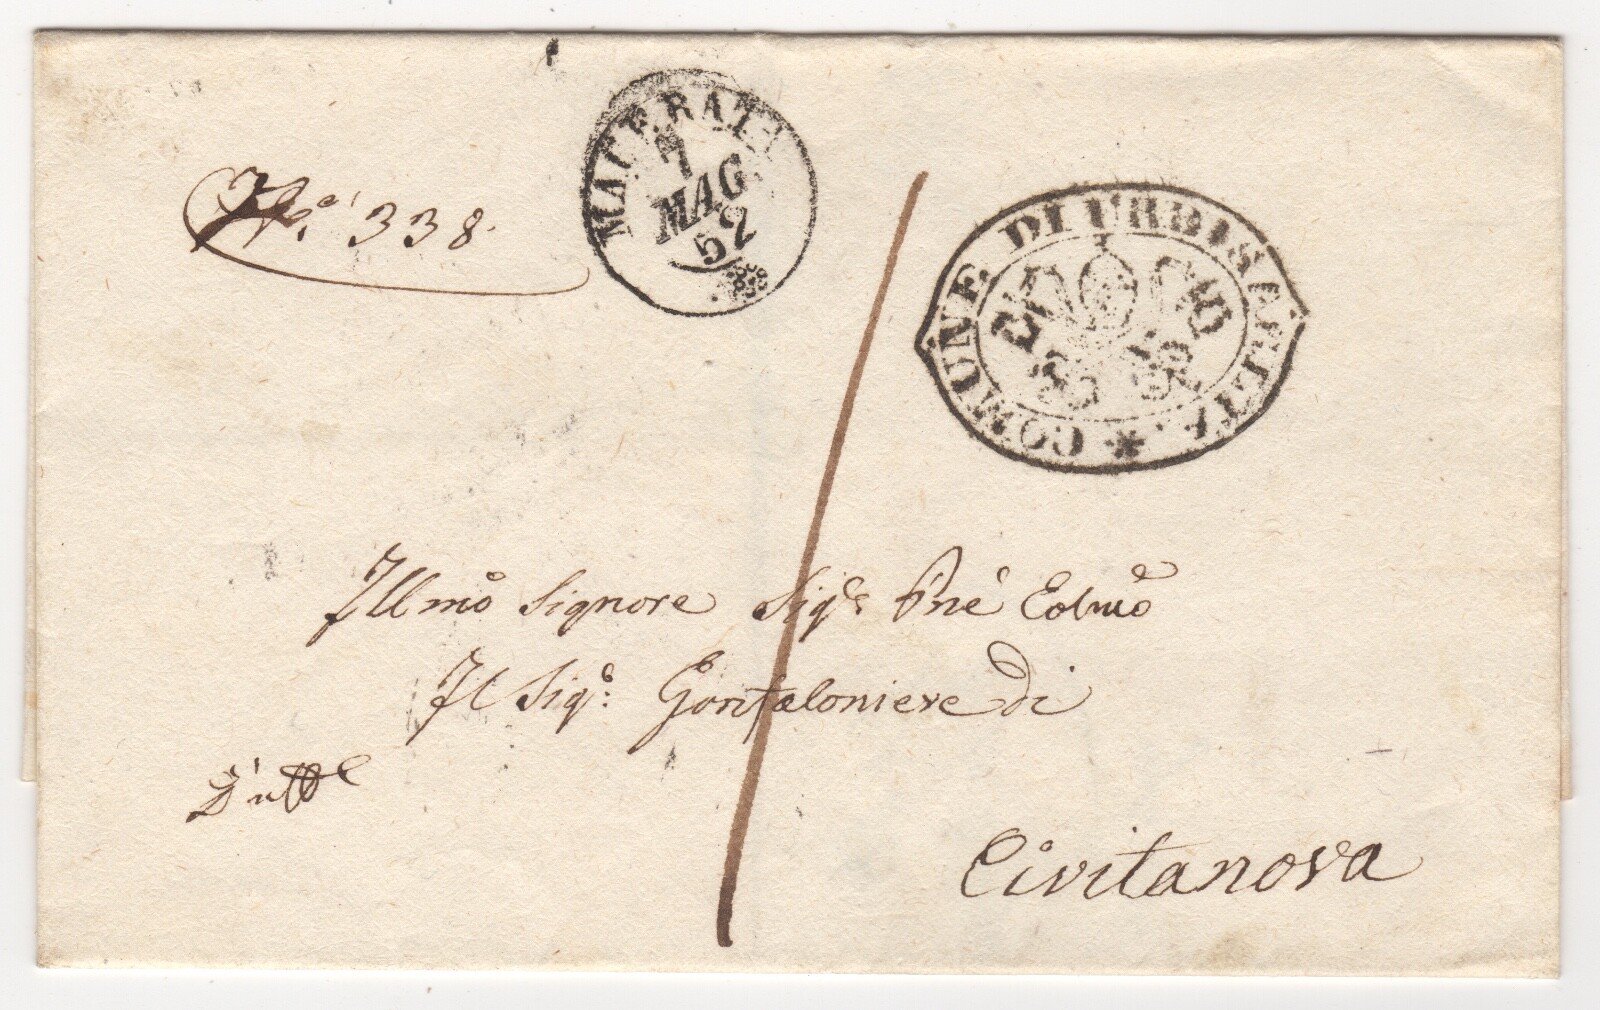 N.° 338.
MACERATA
7
MAG
52
COMUNE DI URBISAGLIA *
Illmo Signore Sigr Pne Colmo
Il Sigr: Gonfaloniere di
D'uff°
Civitanova